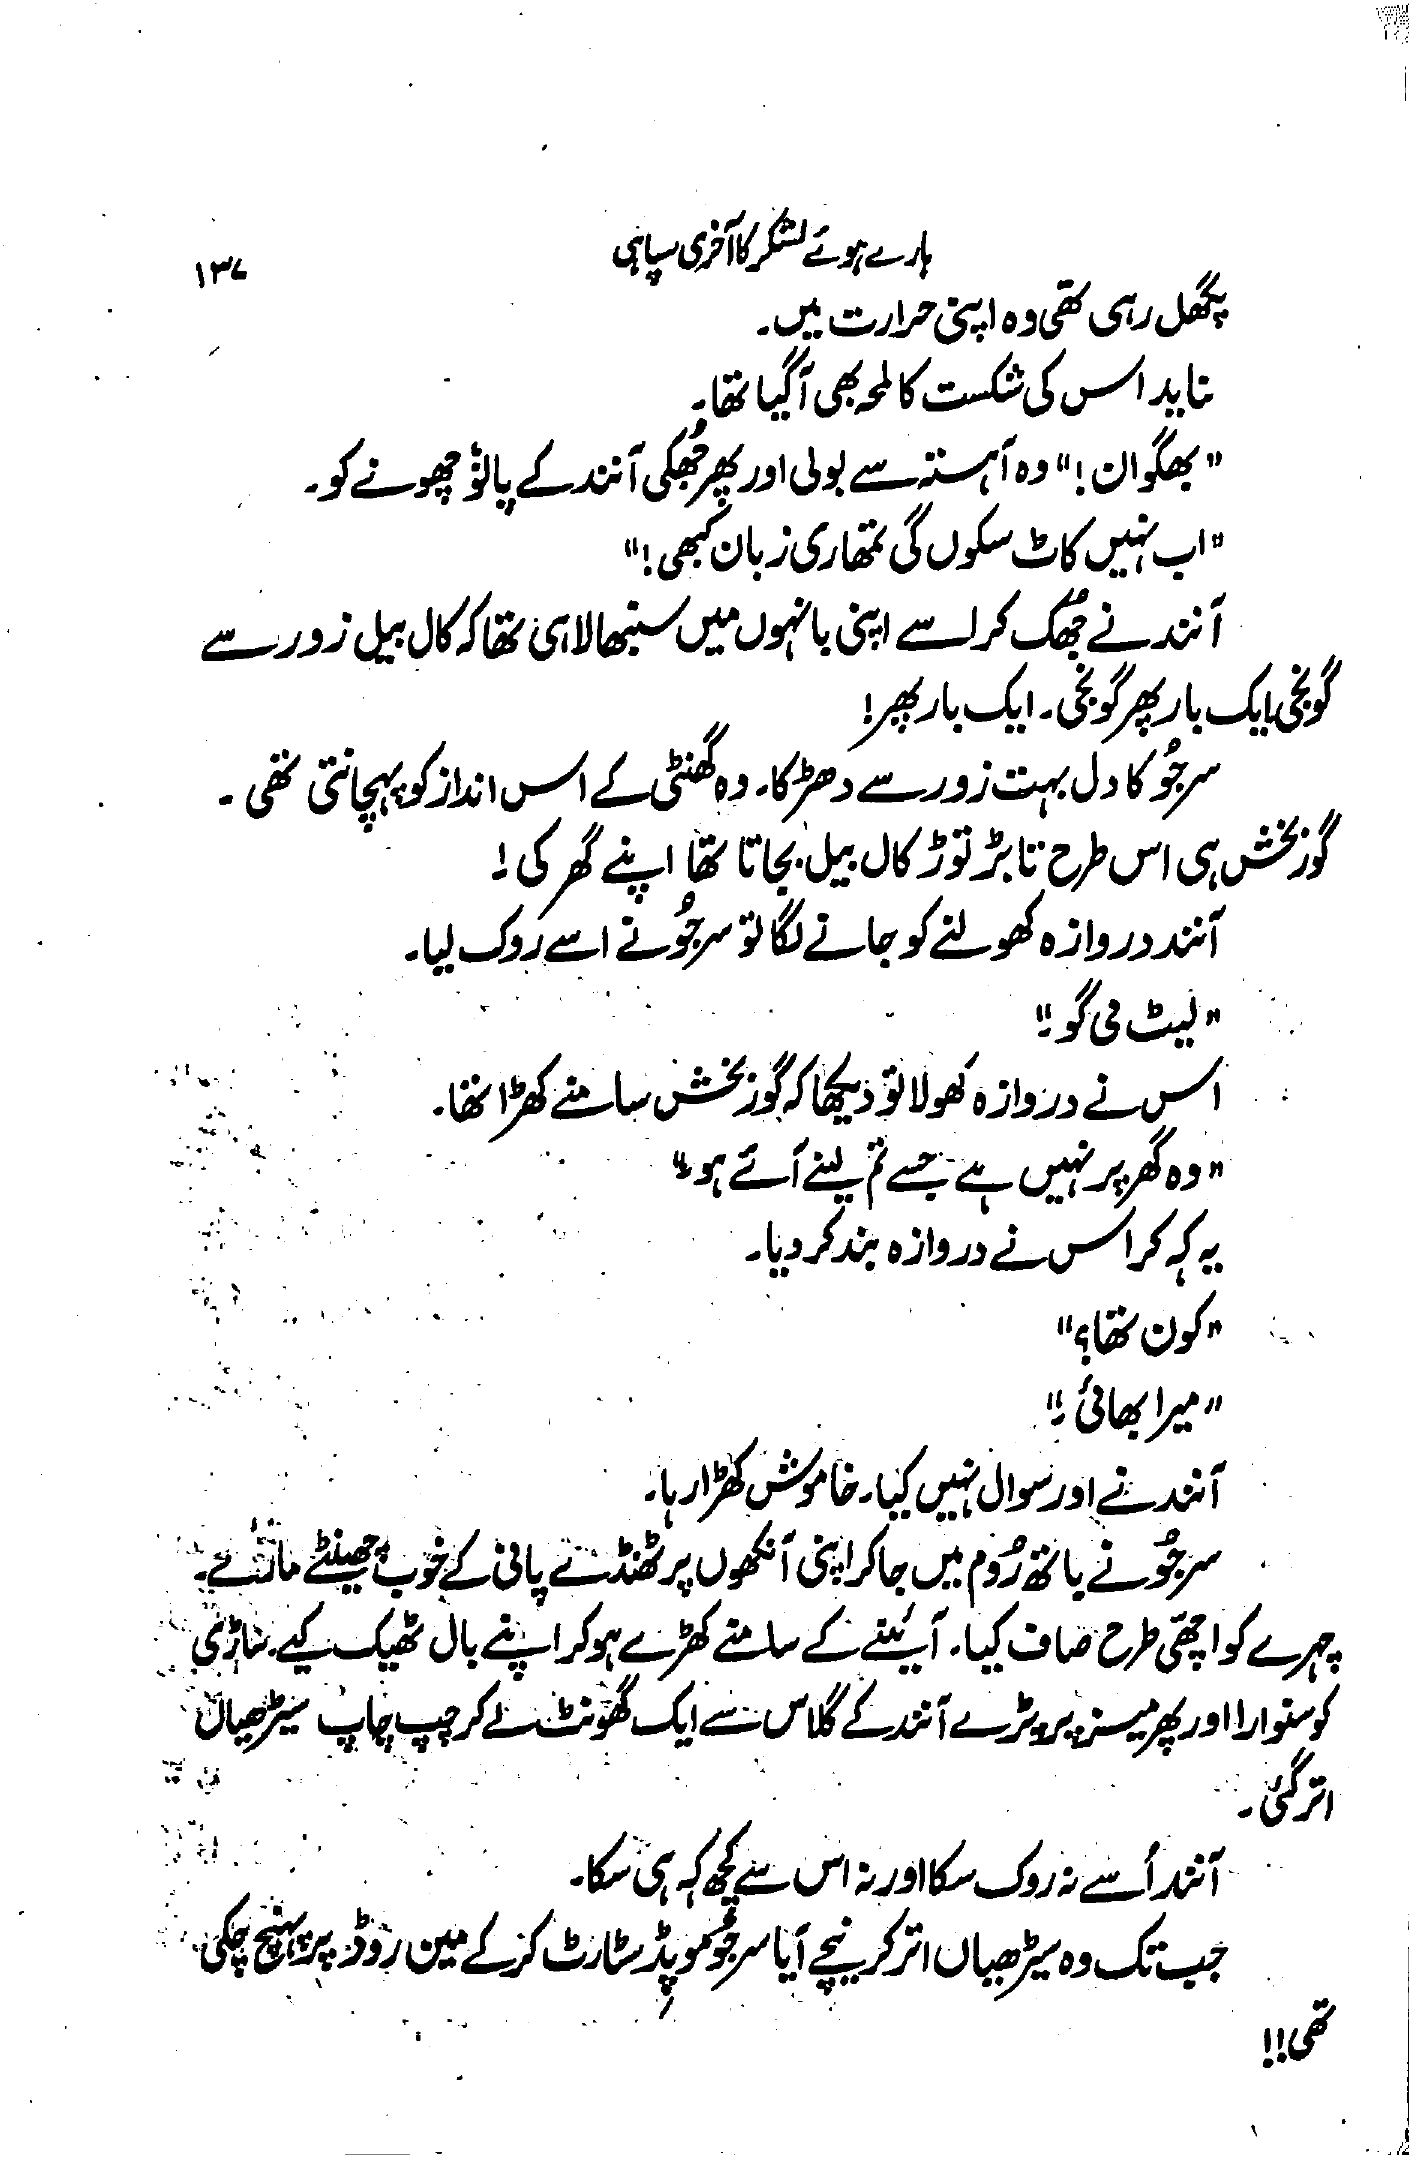 ہارے ہوئے لشکر کا آخری سپاہی
۱۳۷
پگھل رہی تھی وہ اپنی حرارت میں۔
شاید اس کی شکست کا لمحہ بھی آ گیا تھا۔
"بھگوان!" وہ آہستہ سے بولی اور پھر جُھکی آنند کے پاؤں چھونے کو۔
"اب نہیں کاٹ سکوں گی تمھاری زبان کبھی!"
آنند نے جُھک کر اسے اپنی بانہوں میں سنبھالا ہی تھا کہ کال بیل زور سے
گونجی ایک بار پھر گونجی۔ ایک بار پھر!
سرجُو کا دل بہت زور سے دھڑکا۔ وہ گھنٹی کے اس انداز کو پہچانتی تھی۔
گوربخش ہی اس طرح تابڑ توڑ کال بیل بجاتا تھا اپنے گھر کی!
آنند دروازہ کھولنے کو جانے لگا تو سرجُو نے اسے روک لیا۔
"لیٹ می گو۔"
اس نے دروازہ کھولا تو دیکھا کہ گوربخش سامنے کھڑا تھا۔
"وہ گھر پر نہیں ہے جسے تم لینے آئے ہو۔"
یہ کہہ کر اس نے دروازہ بند کر دیا۔
"کون تھا؟"
"میرا بھائی۔"
آنند نے اور سوال نہیں کیا۔ خاموش کھڑا رہا۔
سرجُو نے باتھ رُوم میں جا کر اپنی آنکھوں پر ٹھنڈے پانی کے خوب چھینٹے مارے۔
چہرے کو اچھّی طرح صاف کیا۔ آئینے کے سامنے کھڑے ہو کر اپنے بال ٹھیک کیے۔ ساڑی
کو سنوارا اور پھر میز پر پڑے آنند کے گلاس سے ایک گھونٹ لے کر چپ چاپ سیڑھیاں
اتر گئی۔
آنند اُسے نہ روک سکا اور نہ اس سے کچھ کہہ ہی سکا۔
جب تک وہ سیڑھیاں اتر کر نیچے آیا سرجُو موپڈ سٹارٹ کر کے مین روڈ پر پہنچ چکی
تھی!!